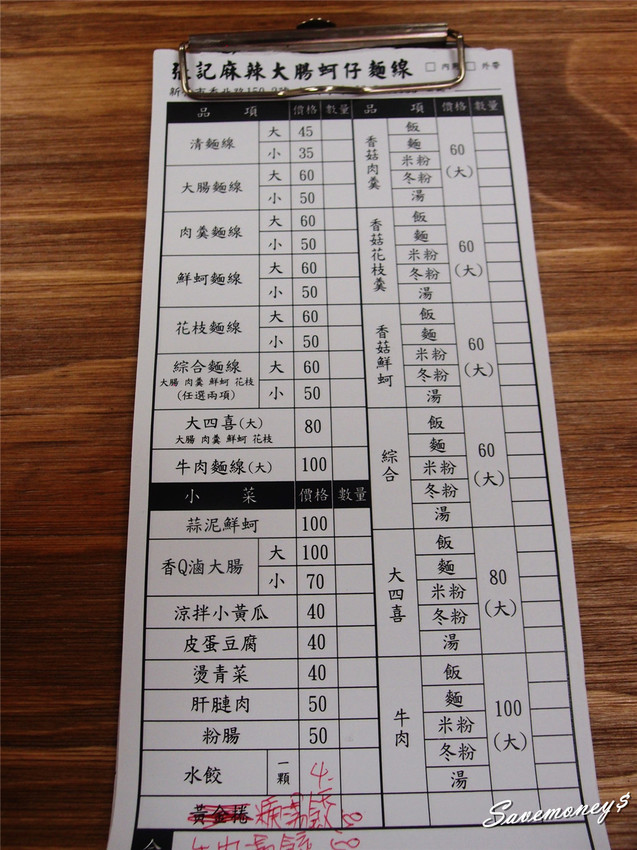 張記麻辣大腸蚵仔麵線 □內用 □外帶
品項 價格 數量
清麵線 大 45
小 35
大腸麵線 大 60
小 50
肉羹麵線 大 60
小 50
鮮蚵麵線 大 60
小 50
花枝麵線 大 60
小 50
綜合麵線 大 60
大腸 肉羹 鮮蚵 花枝
(任選兩項) 小 50
大四喜(大) 80
大腸 肉羹 鮮蚵 花枝
牛肉麵線(大) 100
小菜 價格 數量
蒜泥鮮蚵 100
香Q滷大腸 大 100
小 70
涼拌小黃瓜 40
皮蛋豆腐 40
燙青菜 40
肝膁肉 50
粉腸 50
水餃 一顆 4.
黃金捲
品項 價格 數量
香菇肉羹 60(大)
飯
麵
米粉
冬粉
湯
香菇花枝羹 60(大)
飯
麵
米粉
冬粉
湯
香菇鮮蚵 60(大)
飯
麵
米粉
冬粉
湯
綜合 60(大)
飯
麵
米粉
冬粉
湯
大四喜 80(大)
飯
麵
米粉
冬粉
湯
牛肉 100(大)
飯
麵
米粉
冬粉
湯
Savemoney$